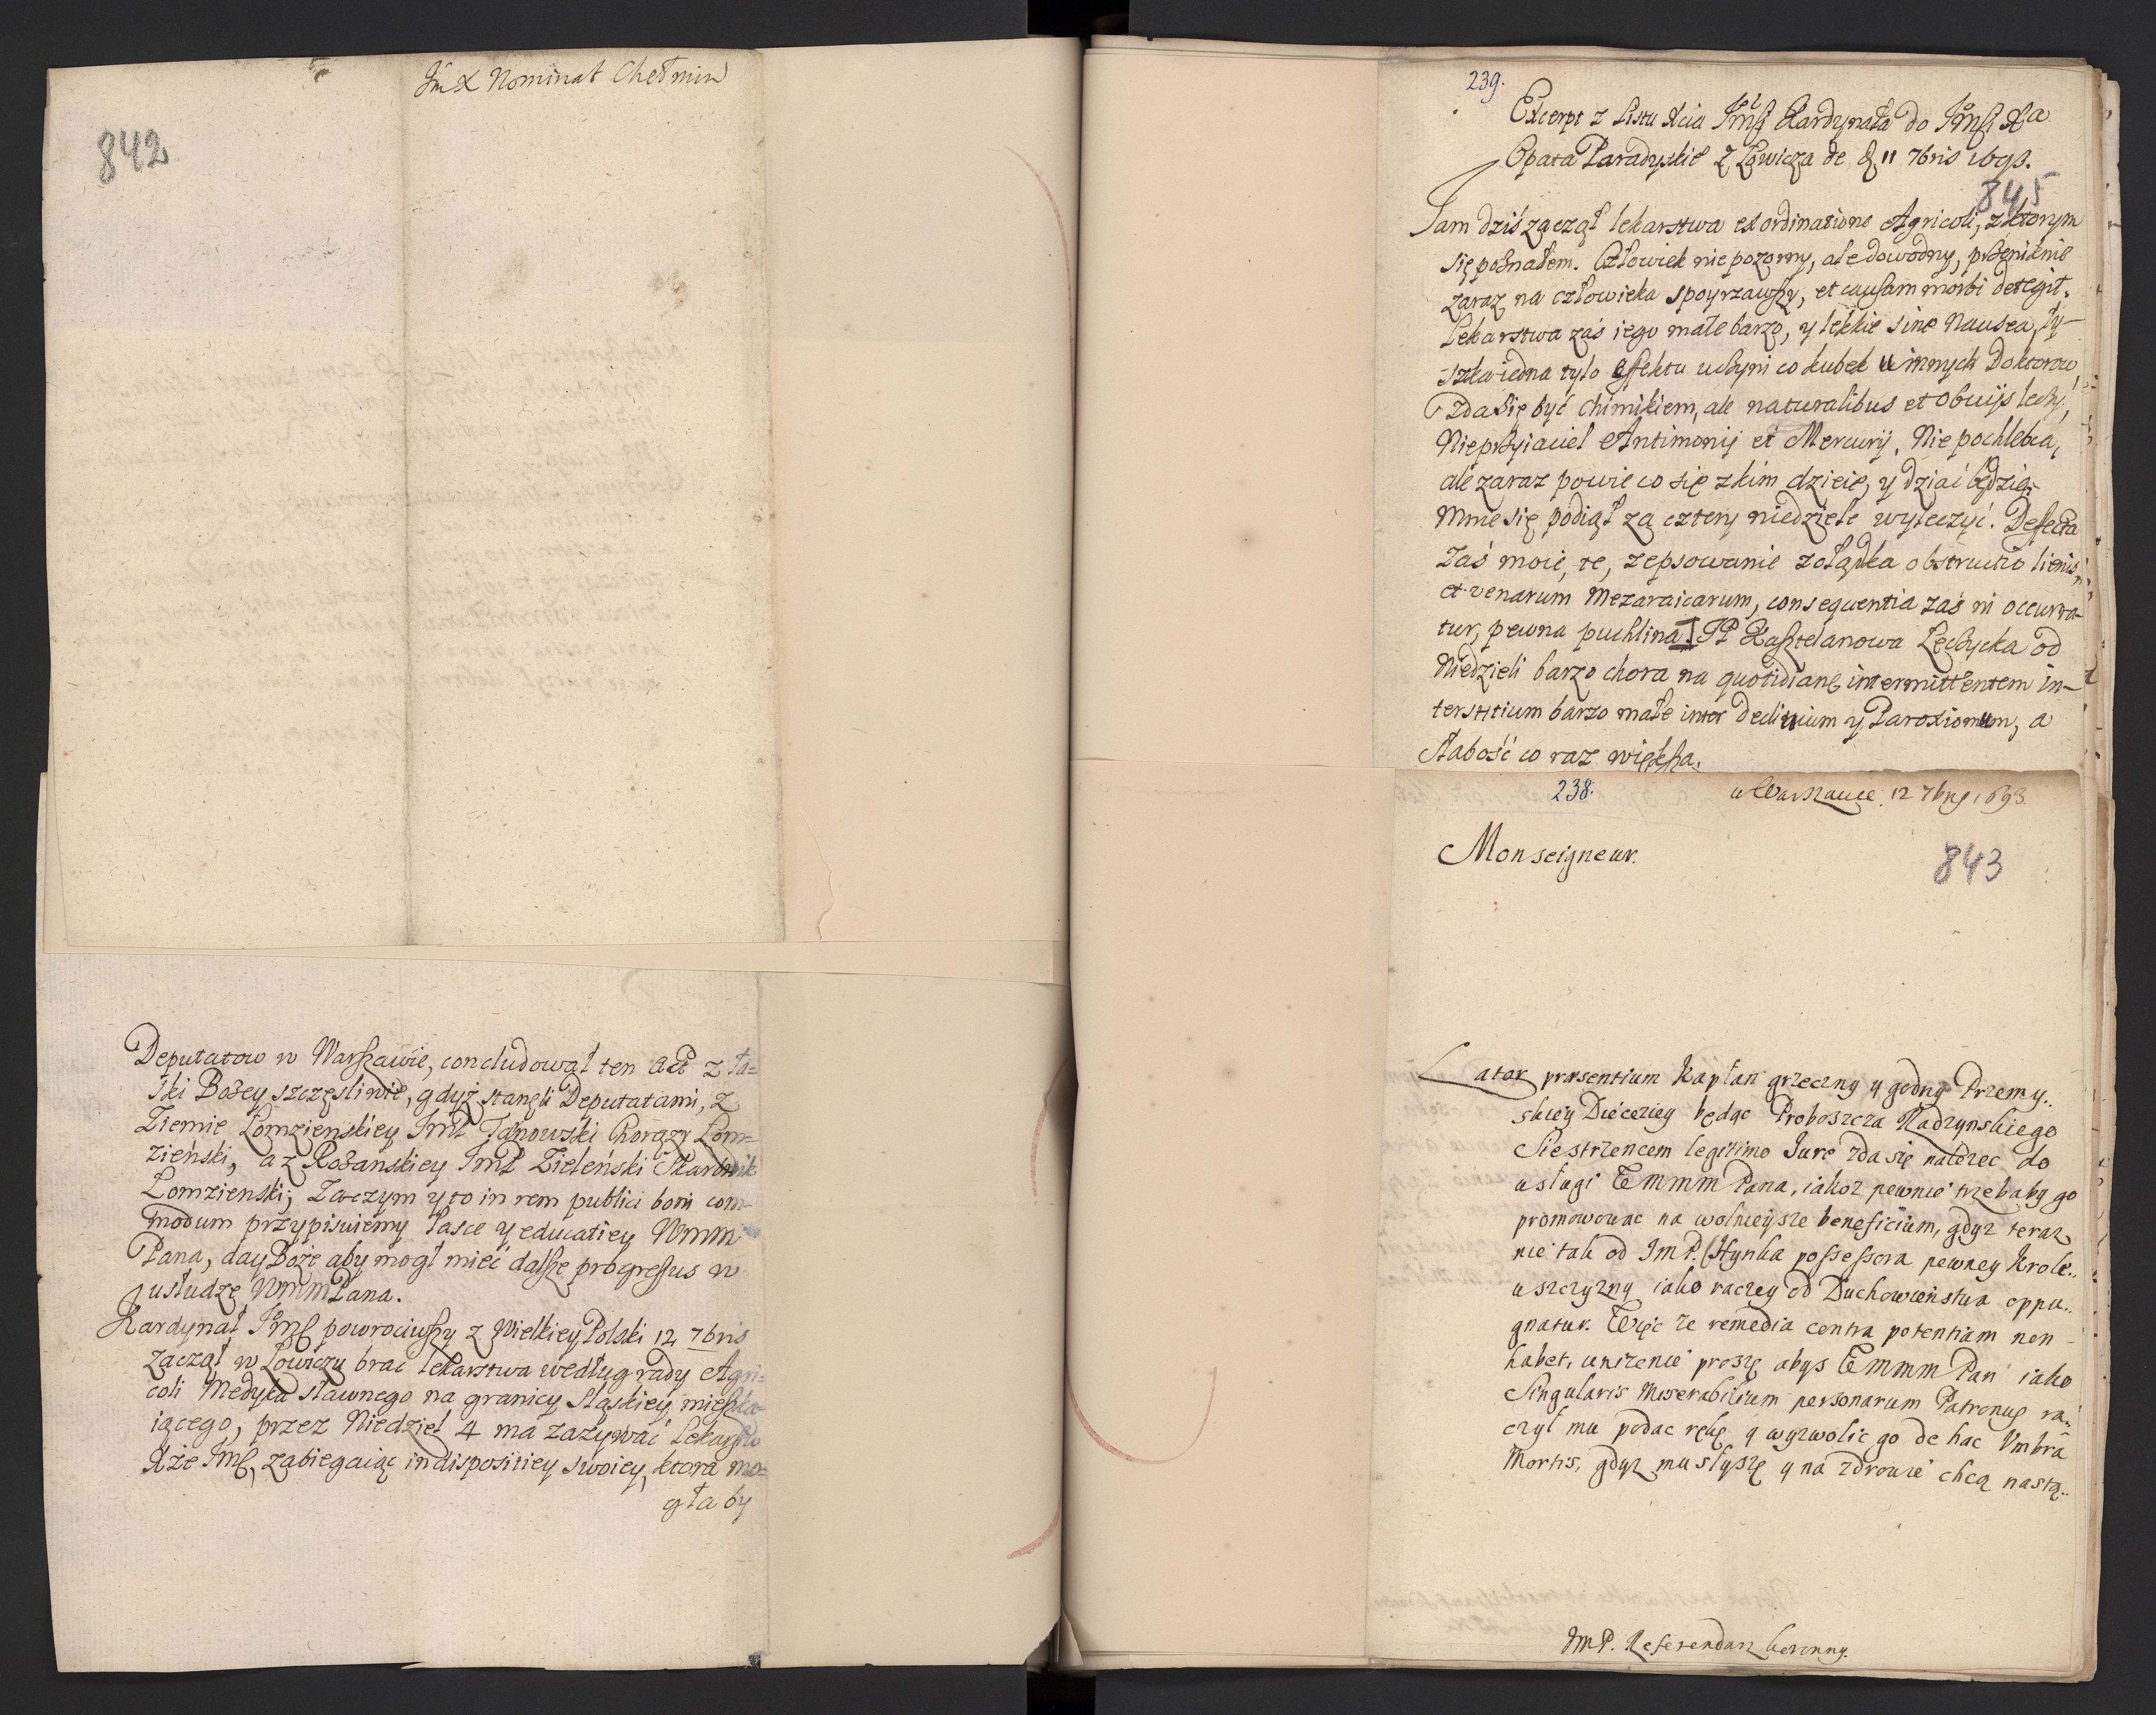 Im X Nominat Chełmin
842
Deputatow w Warszawie, concludował ten act z ła=
ski Bożey szczęsliwie, gdyż stanęli Deputatami, z
Ziemie Łomzienskiey ImP Janowski Chorązy Łom=
zieński, a z Rożanskiey ImP Zieleński Skarbnik
Łomzienski; Zaczym y to in rem publici boni com=
modum przypisuiemy Łasce y educatiey Wmm
Pana, day Boże aby mogł mieć dalsze progressus w
usłudze WmmPana.
Kardynał Imsc powrociwszy z Wielkiey Polski 12 7bris
zaczął w Łowiczu brać lekarstwa według rady Agri=
coli Medyka sławnego na granicy Sląskiey mieszka=
iącego, przez Niedziel 4 ma zazywać lekarstw
Xże Imsc, zabiegaiąc indispositiey swoiey, ktora mo=
gła by
239.
Excerpt z listu Xcia Imsci Kardynała do Imsci Xa
Opata Paradyskie z Łowicza de d. 11 7bris 1693.
845
Jam dziś zaczął lekarstwa ex ordinatione Agricoli, z ktorym
się poznałem. Człowiek nie pozorny, ale dowodny, przeniknie
zaraz na człowieka spoyrzawszy, et causam morbi detegit.
Lekarstwa zaś iego małe barzo, y lekkie sine Nausea, ły-
szka iedna tylo effektu uczyni co kubek u innych Doktorow
Zda się być chimikiem, ale naturalibus et obvijs leczy,
Nieprzyiaciel Antimonij et Mercurij, Nie pochlebca,
ale zaraz powie co się z kim dzieie, y dziać będzie.
Mnie się podiął za cztery niedziele wyleczyć. Defecta
zaś moie, te, zepsowanie zołądka obstructio lienis,
et venarum Mezaraicarum, consequentia zaś ni occurra-
tur, pewna puchlina. JP Kasztelanowa Łęczycka od
Niedzieli barzo chora na quotidianę intermittentem in-
terstitium barzo małe inter declinium y Paroxiomum, a
słabość co raz większa.
238.
w Warszawie. 12 7bris 1693.
Monseigneur.
843
Lator præsentium Kapłan grzeczny y godny Przemy..
skiey Dieceziey będąc Proboszcza Radzynskiego
Siestrzencem legitimo Jure zda się nalezec do
usługi WmmmPana, iakoz pewnie trzebaby go
promowowac na wolnieysze beneficium, gdyz teraz
nie tak od ImP. Hynka possessora pewney Krole..
wszczyzny iako raczey od Duchowienstwa oppu..
gnatur. Więc ze remedia contra potentiam non
habet, unizenie proszę abys Wmmm Pan iako
Singularis Miserabilium personarum Patronus ra..
czył mu podac rękę y wyzwolic go de hac Vmbra
Mortis, gdyz mu słyszę y na zdrowie chcą nastą..
ImP. Referendarz koronny.